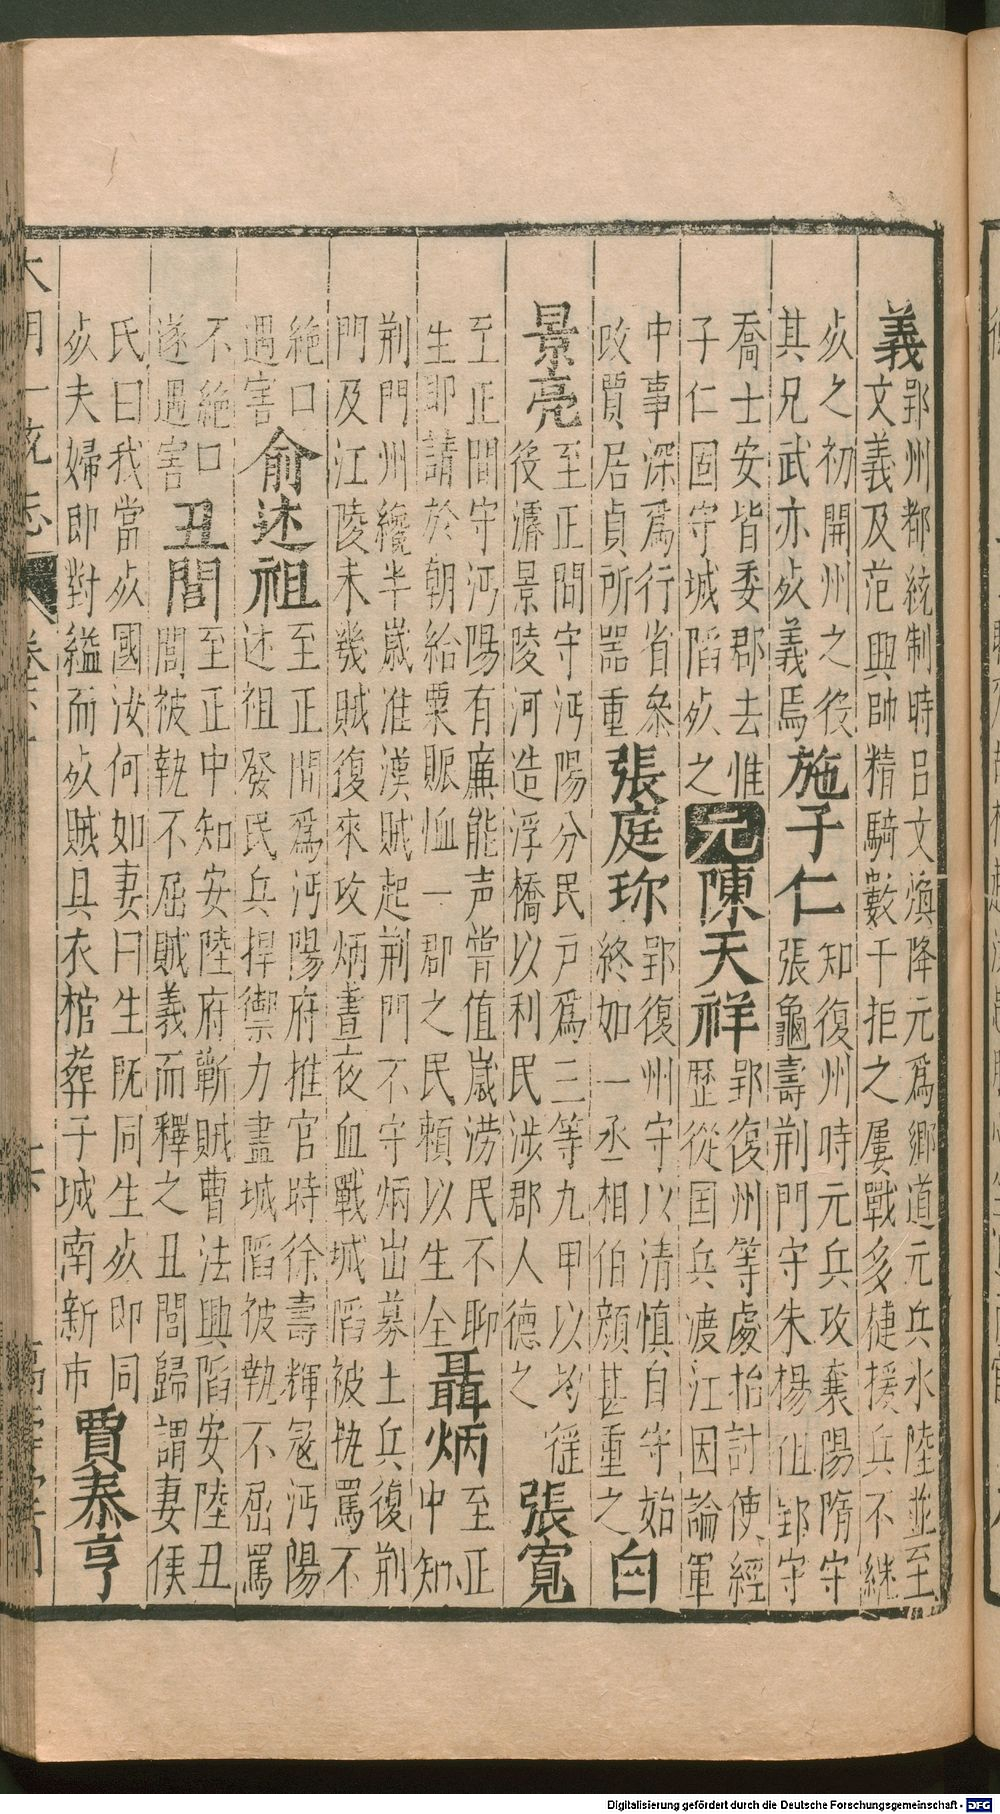 義
郢州都統制時呂文煥降元爲鄉道元兵水陸並至
文義及范興帥精騎數千拒之屢戰多㨗援兵不継
死之初開州之役知復州時元兵攻棄陽隋守
其兄武亦死義焉施子仁張龜壽荆門守朱楊伹郢守
喬士安皆委郡去惟郢復州等處招討使經
子仁固守城陷死之元陳天祥歷從囯兵渡江因論軍
中事深爲行省叅張庭珍郢復州守以清慎自守始
政賈居貞所器重終如一丞相伯顏甚重之白
景亮至正間守沔陽分民戸爲三等九甲以均徭張寬
後瀦景陵河造浮橋以利民涉郡人德之
至正間守沔陽有廉能声嘗值歳澇民不聊聶炳至正
生即請於朝給粟賑恤一郡之民頼以生全中知
荆門州纔半歲淮漢賊起荆門不守炳出募土兵復荆
門及江陵未幾賊復來攻炳晝夜血戰城陷被执罵不
絶口俞述祖至正間爲沔陽府推官時徐壽輝冦沔陽
遇害述祖發民兵捍禦力盡城陷被執不屈罵
不絶口丑閭至正中知安陸府蘄賊曹法興陷安陸丑
遂遇害閭被執不屈賊義而釋之丑閭歸謂妻侯
氏曰我當死國汝何如妻曰生既同生死即同賈泰亨
死夫婦即對縊而死賊具衣棺葬于城南新市
大明一统志 卷六十